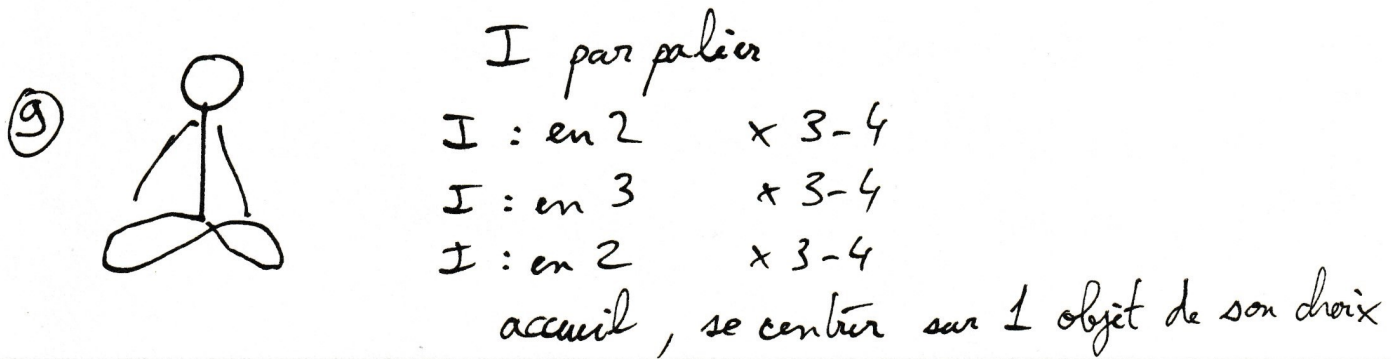 I par palier
⑨
I : en 2 x 3-4
I : en 3 x 3-4
I : en 2 x 3-4
accueil, se centrer sur 1 objet de son choix